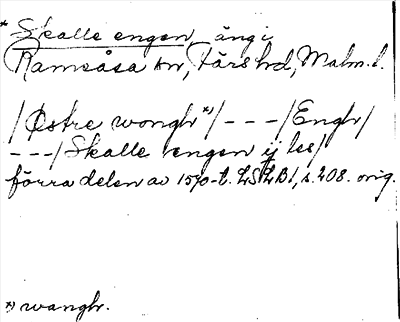 * Skalle engen, äng i
Ramsåsa sn, Färs hd, Malm. l.
/Østre wongh *)/ - - - /Engh/
- - - /Skalle engen ij les/
förra delen av 1570-t. LSLB1, s. 208. orig.
*) wangh.